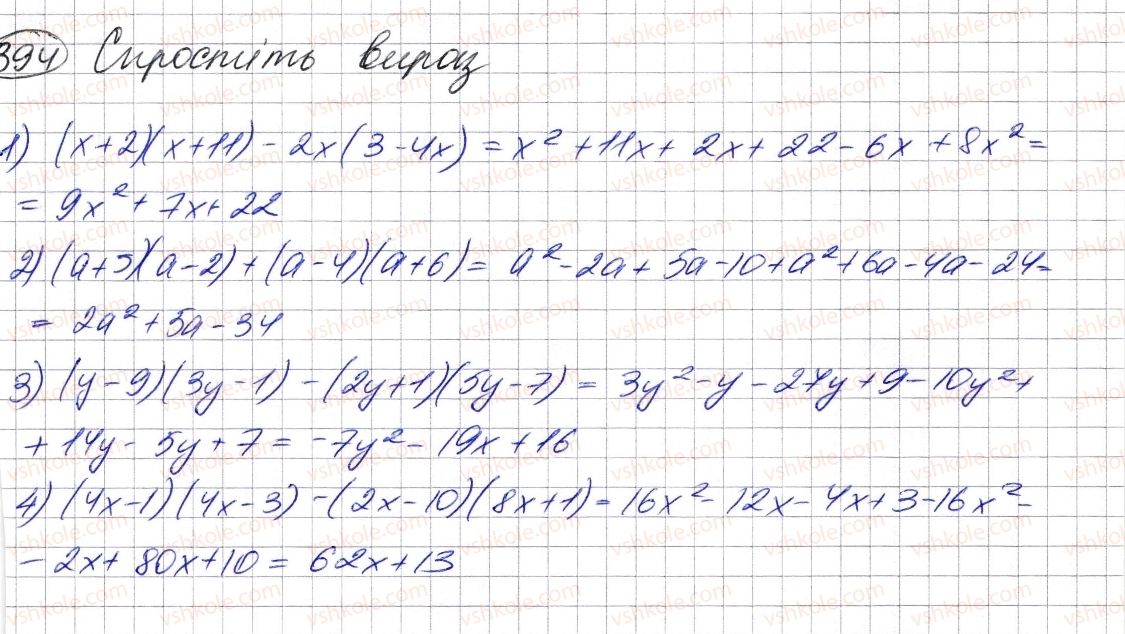 394 Спростіть вираз
1) (x+2)(x+11) - 2x(3-4x) = x² + 11x + 2x + 22 - 6x + 8x² =
= 9x² + 7x + 22
2) (a+5)(a-2) + (a-4)(a+6) = a² - 2a + 5a - 10 + a² + 6a - 4a - 24 =
= 2a² + 5a - 34
3) (y-9)(3y-1) - (2y+1)(5y-7) = 3y² - y - 27y + 9 - 10y² +
+ 14y - 5y + 7 = -7y² - 19x + 16
4) (4x-1)(4x-3) - (2x-10)(8x+1) = 16x² - 12x - 4x + 3 - 16x² -
- 2x + 80x + 10 = 62x + 13